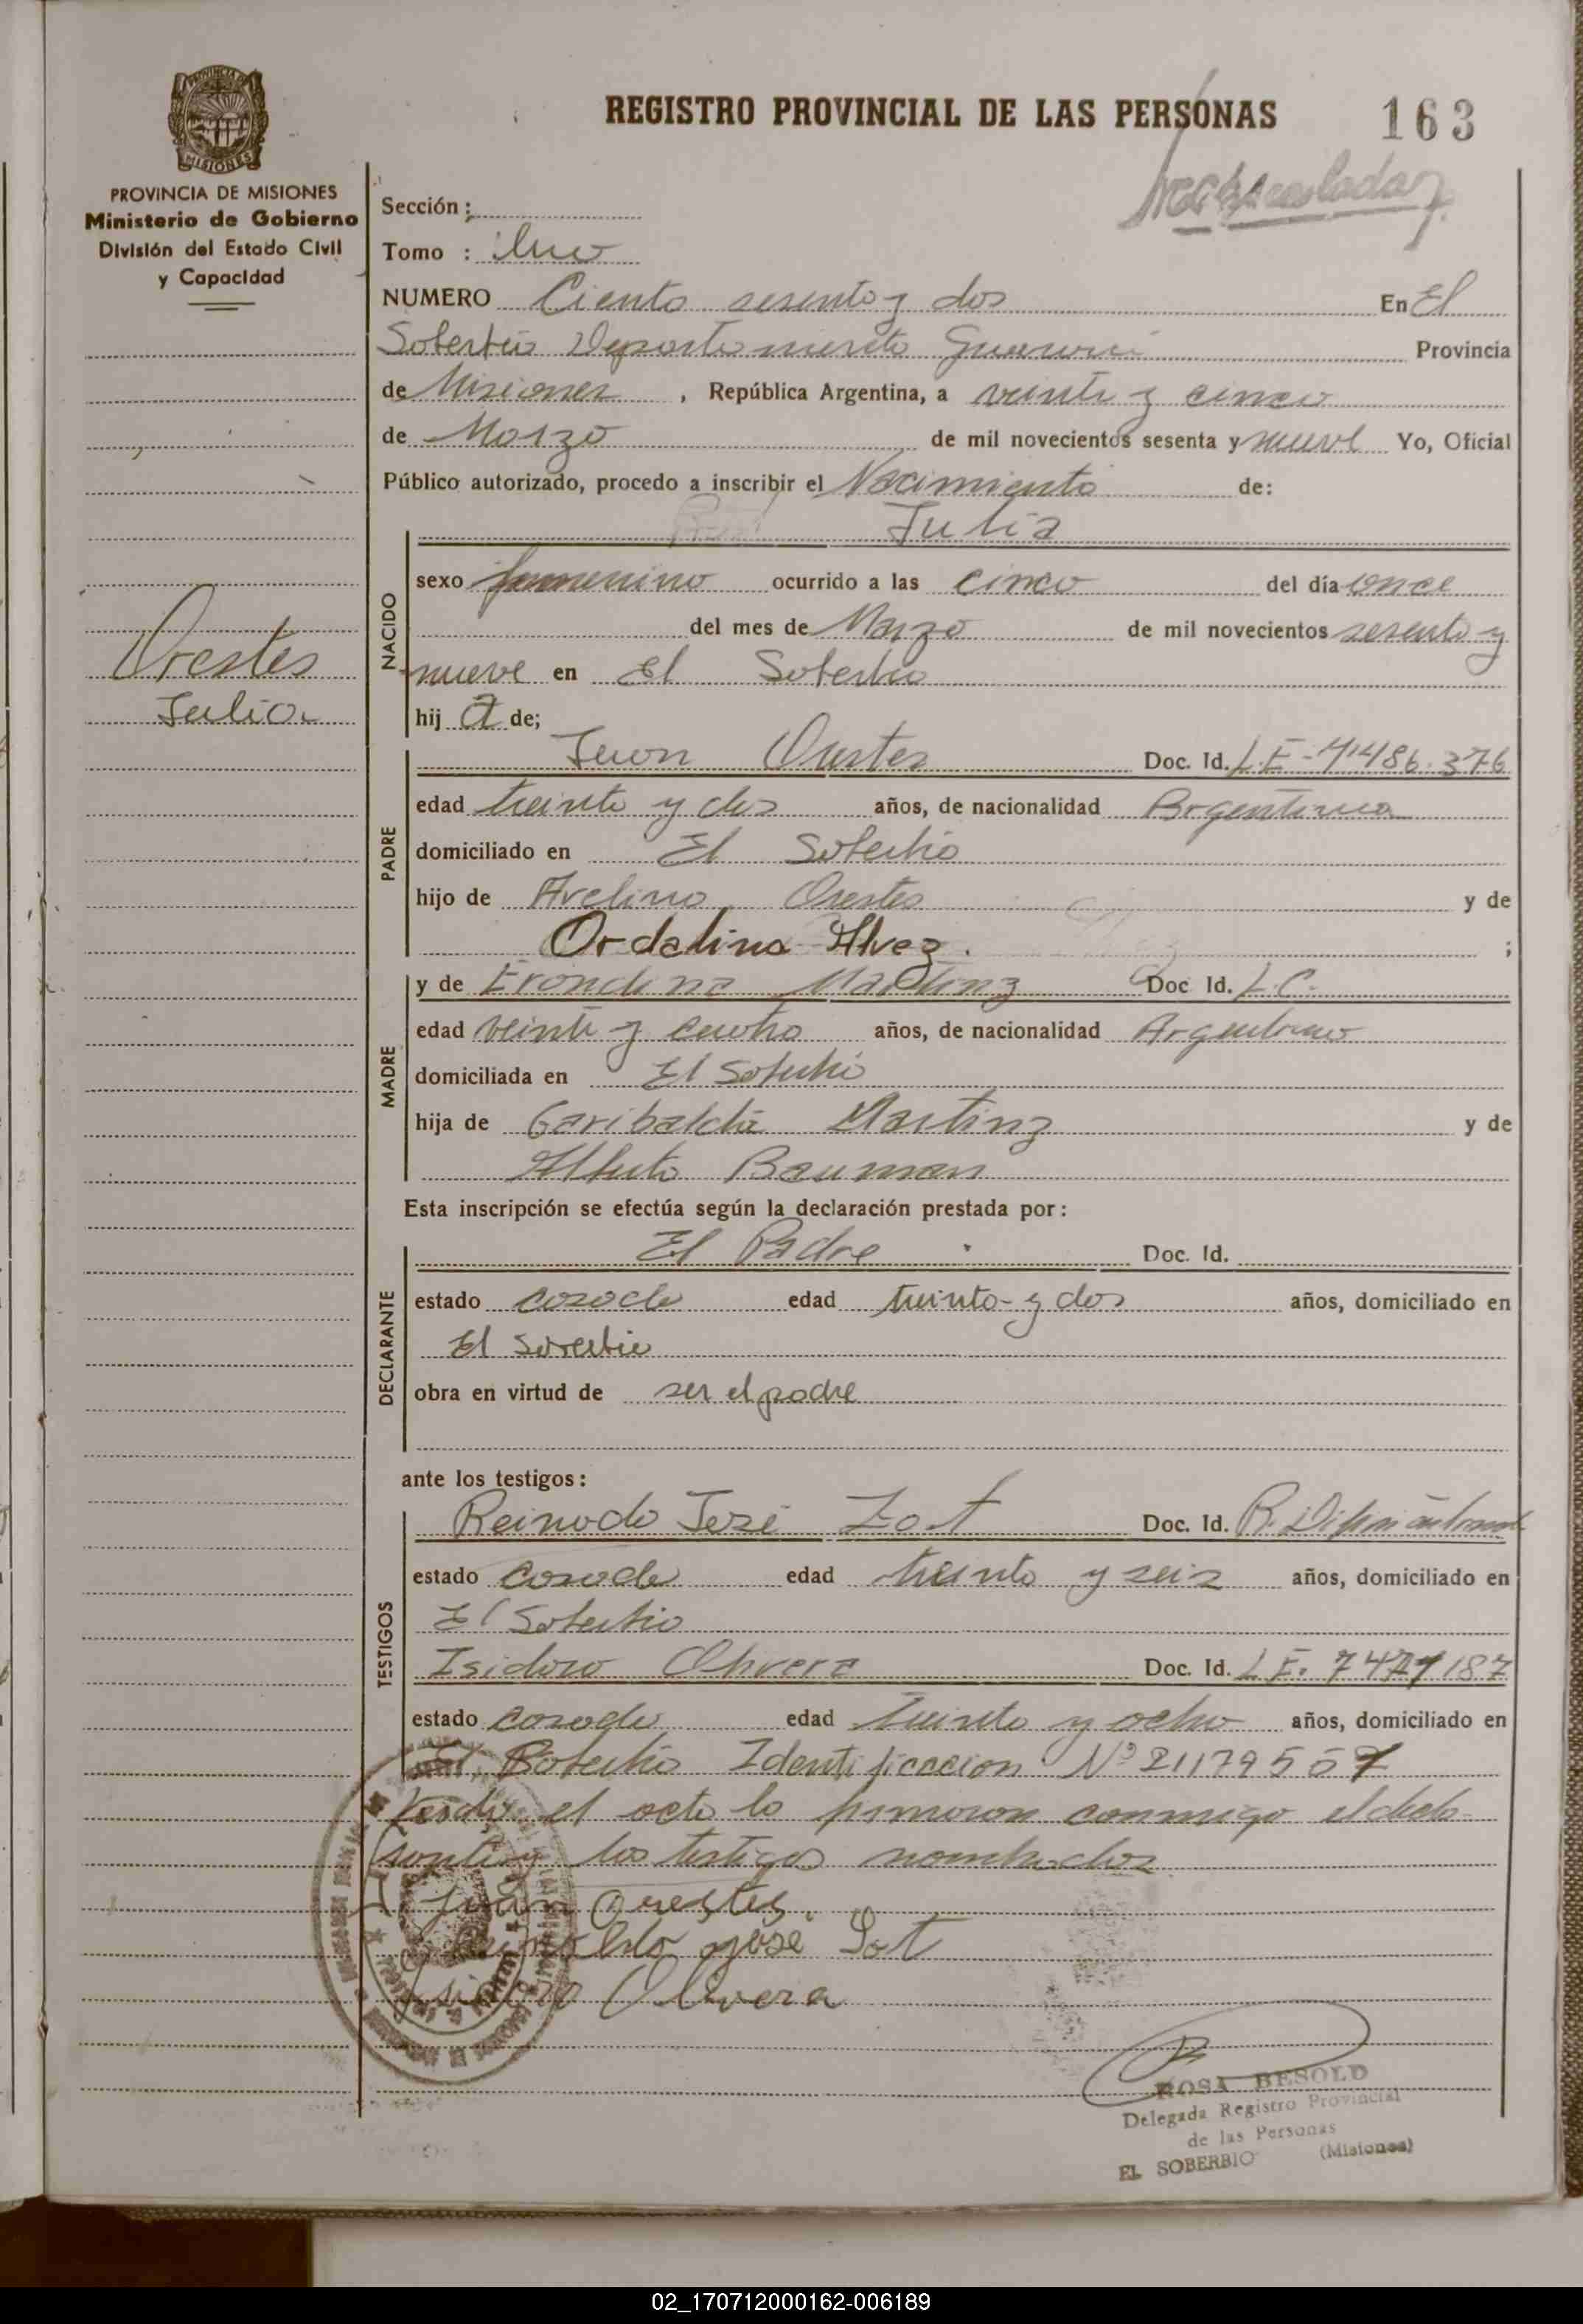 REGISTRO PROVINCIAL DE LAS PERSONAS 163
PROVINCIA DE MISIONES
Ministerio de Gobierno
División del Estado Civil
y Capacidad
Sección :
Tomo : Uno
NUMERO Ciento sesenta y dos En El
Soberbio Departamento Guarani Provincia
de Misiones , República Argentina, a veinte y cinco
de Marzo de mil novecientos sesenta y nueve Yo, Oficial
Público autorizado, procedo a inscribir el Nacimiento de:
Julia
NACIDO
sexo femenino ocurrido a las cinco del día once
del mes de Marzo de mil novecientos sesenta y
nueve en El Soberbio
hij a de;
Orestes
Julia
PADRE
Juan Orestes Doc. Id. L.E - 7.486.376
edad treinta y dos años, de nacionalidad Argentina
domiciliado en El Soberbio
hijo de Avelino Orestes y de
Ordalina Alvez. ;
MADRE
y de Erondina Martinz Doc Id. L.C.
edad veinte y cuatro años, de nacionalidad Argentina
domiciliada en El Soberbio
hija de Garibaldi Martinz y de
Bauman
Esta inscripción se efectúa según la declaración prestada por:
DECLARANTE
El Padre Doc. Id.
estado casado edad treinta y dos años, domiciliado en
El Soberbio
obra en virtud de ser el padre
ante los testigos:
TESTIGOS
Reinodo José Zot Doc. Id.
estado casado edad treinta y seis años, domiciliado en
El Soberbio
Isidoro Olivera Doc. Id. L.E. 7471187
estado casado edad treinta y ocho años, domiciliado en
El Soberbio Identificacion Nº 21179557
Leido el acta la firmaron conmigo el decla-
rante y los testigos nombrados
Juan Orestes.
Reinoldo José Sot
Isidoro Olivera
ROSA BESOLD
Delegada Registro Provincial
de las Personas
EL SOBERBIO (Misiones)
02_170712000162-006189